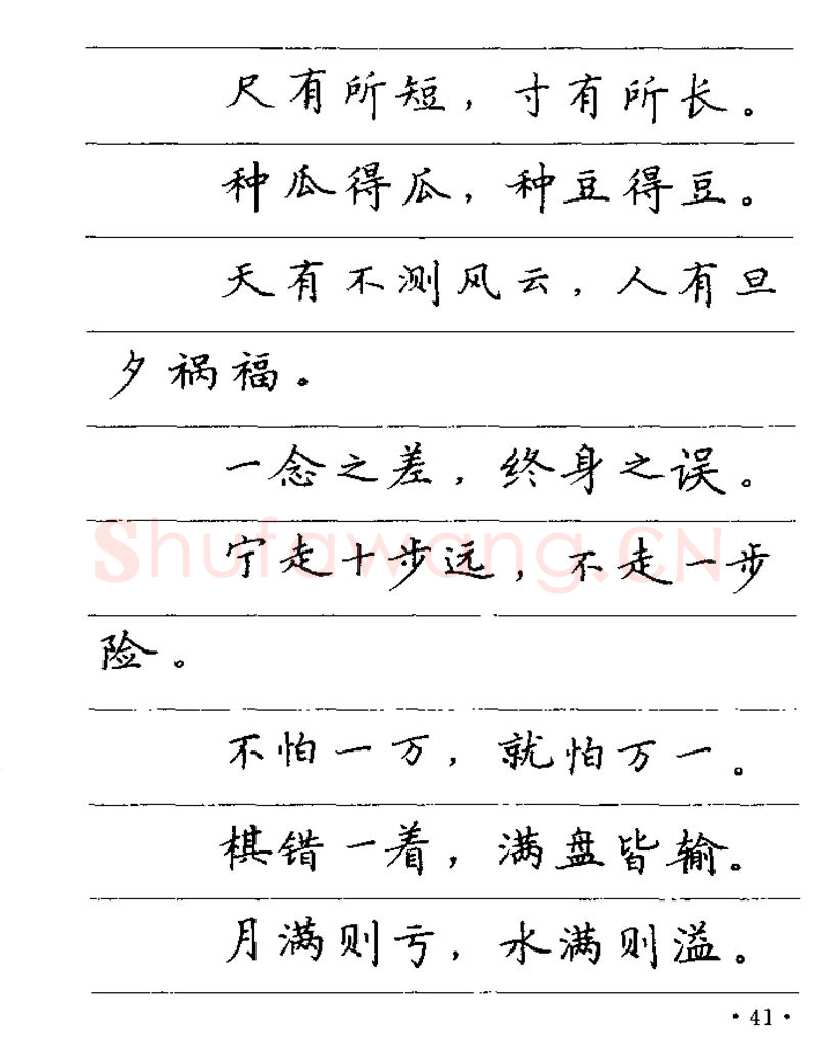 尺有所短，寸有所长。
种瓜得瓜，种豆得豆。
天有不测风云，人有旦
夕祸福。
一念之差，终身之误。
宁走十步远，不走一步
险。
不怕一万，就怕万一。
棋错一着，满盘皆输。
月满则亏，水满则溢。
Shufawang.CN
·41·